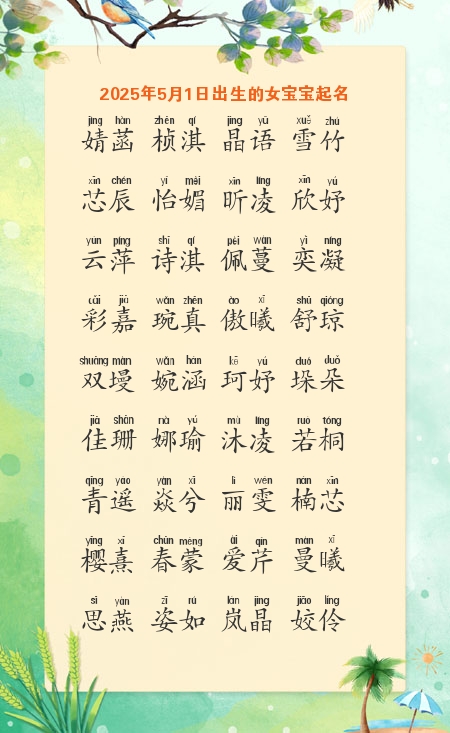 2025年5月1日出生的女宝宝起名
jìng hàn zhēn qí jīng yǔ xuě zhú
婧菡 桢淇 晶语 雪竹
xīn chén yí mèi xīn líng xīn yú
芯辰 怡媚 昕凌 欣妤
yún píng shī qí pèi wàn yì níng
云萍 诗淇 佩蔓 奕凝
cǎi jiā wǎn zhēn ào xī shū qióng
彩嘉 琬真 傲曦 舒琼
shuāng màn wǎn hán kē yú duǒ duǒ
双墁 婉涵 珂妤 垛朵
jiā shān nà yú mù líng ruò tóng
佳珊 娜瑜 沐凌 若桐
qīng yáo yàn xī lì wén nán xīn
青遥 焱兮 丽雯 楠芯
yīng xī chūn méng ài qín màn xī
樱熹 春蒙 爱芹 曼曦
sī yàn zī rú lán jīng jiāo líng
思燕 姿如 岚晶 姣伶